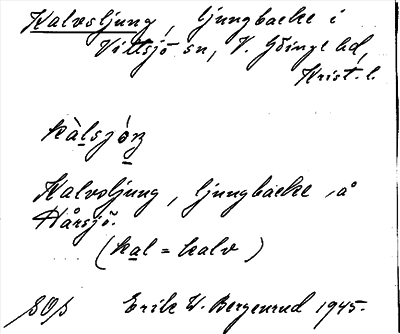 Kalvsljung, ljungbacke i
Vittsjö sn, V. Göinge hd,
Krist. l.
kàlsjóŋ
Kalvsljung, ljungbacke å
Hårsjö.
(kal = kalv)
Erik W. Bergenrud 1945.